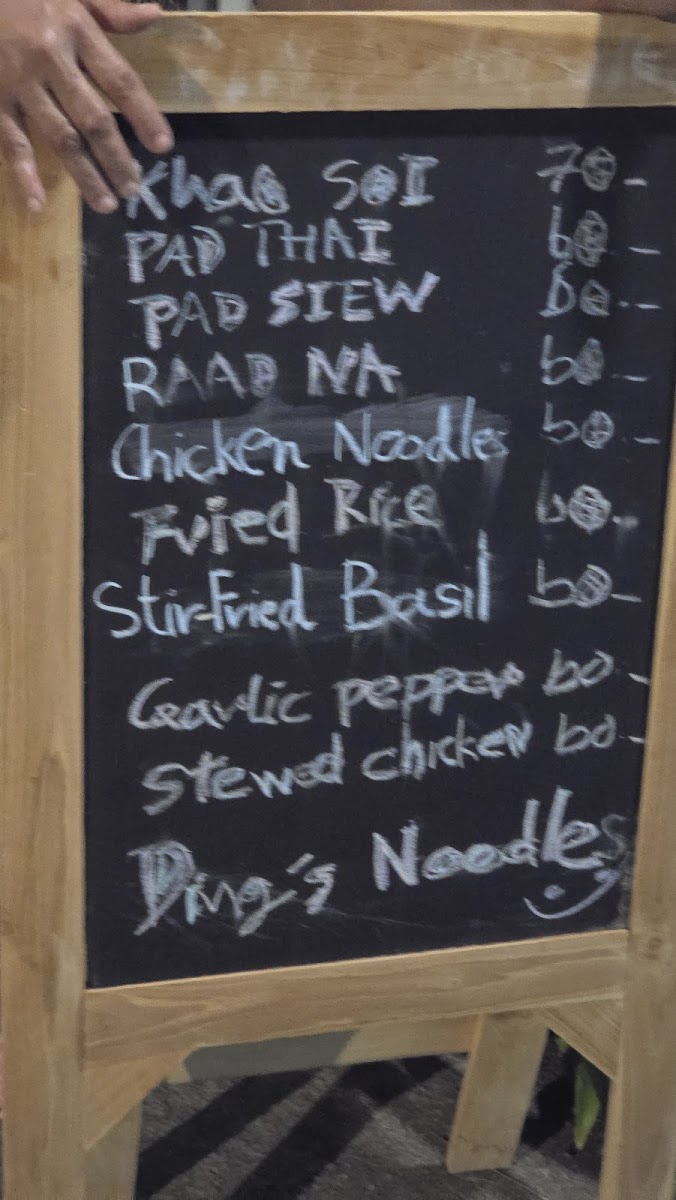 Khao SOI 70.-
PAD THAI 60.-
PAD SIEW 60.-
RAAD NA 60.-
Chicken Noodles 60.-
Fried Rice 60.-
Stir-Fried Basil 60.-
Garlic pepper 60.-
Stewed chicken 60.-
Ding's Noodles